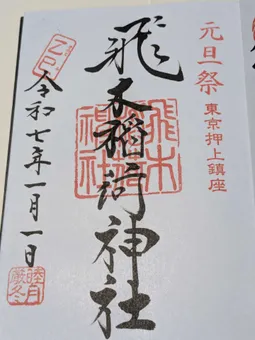 元旦祭
東京押上鎮座
飛木稲荷神社
飛木稲荷神社
令和七年一月一日
睦月
厳冬